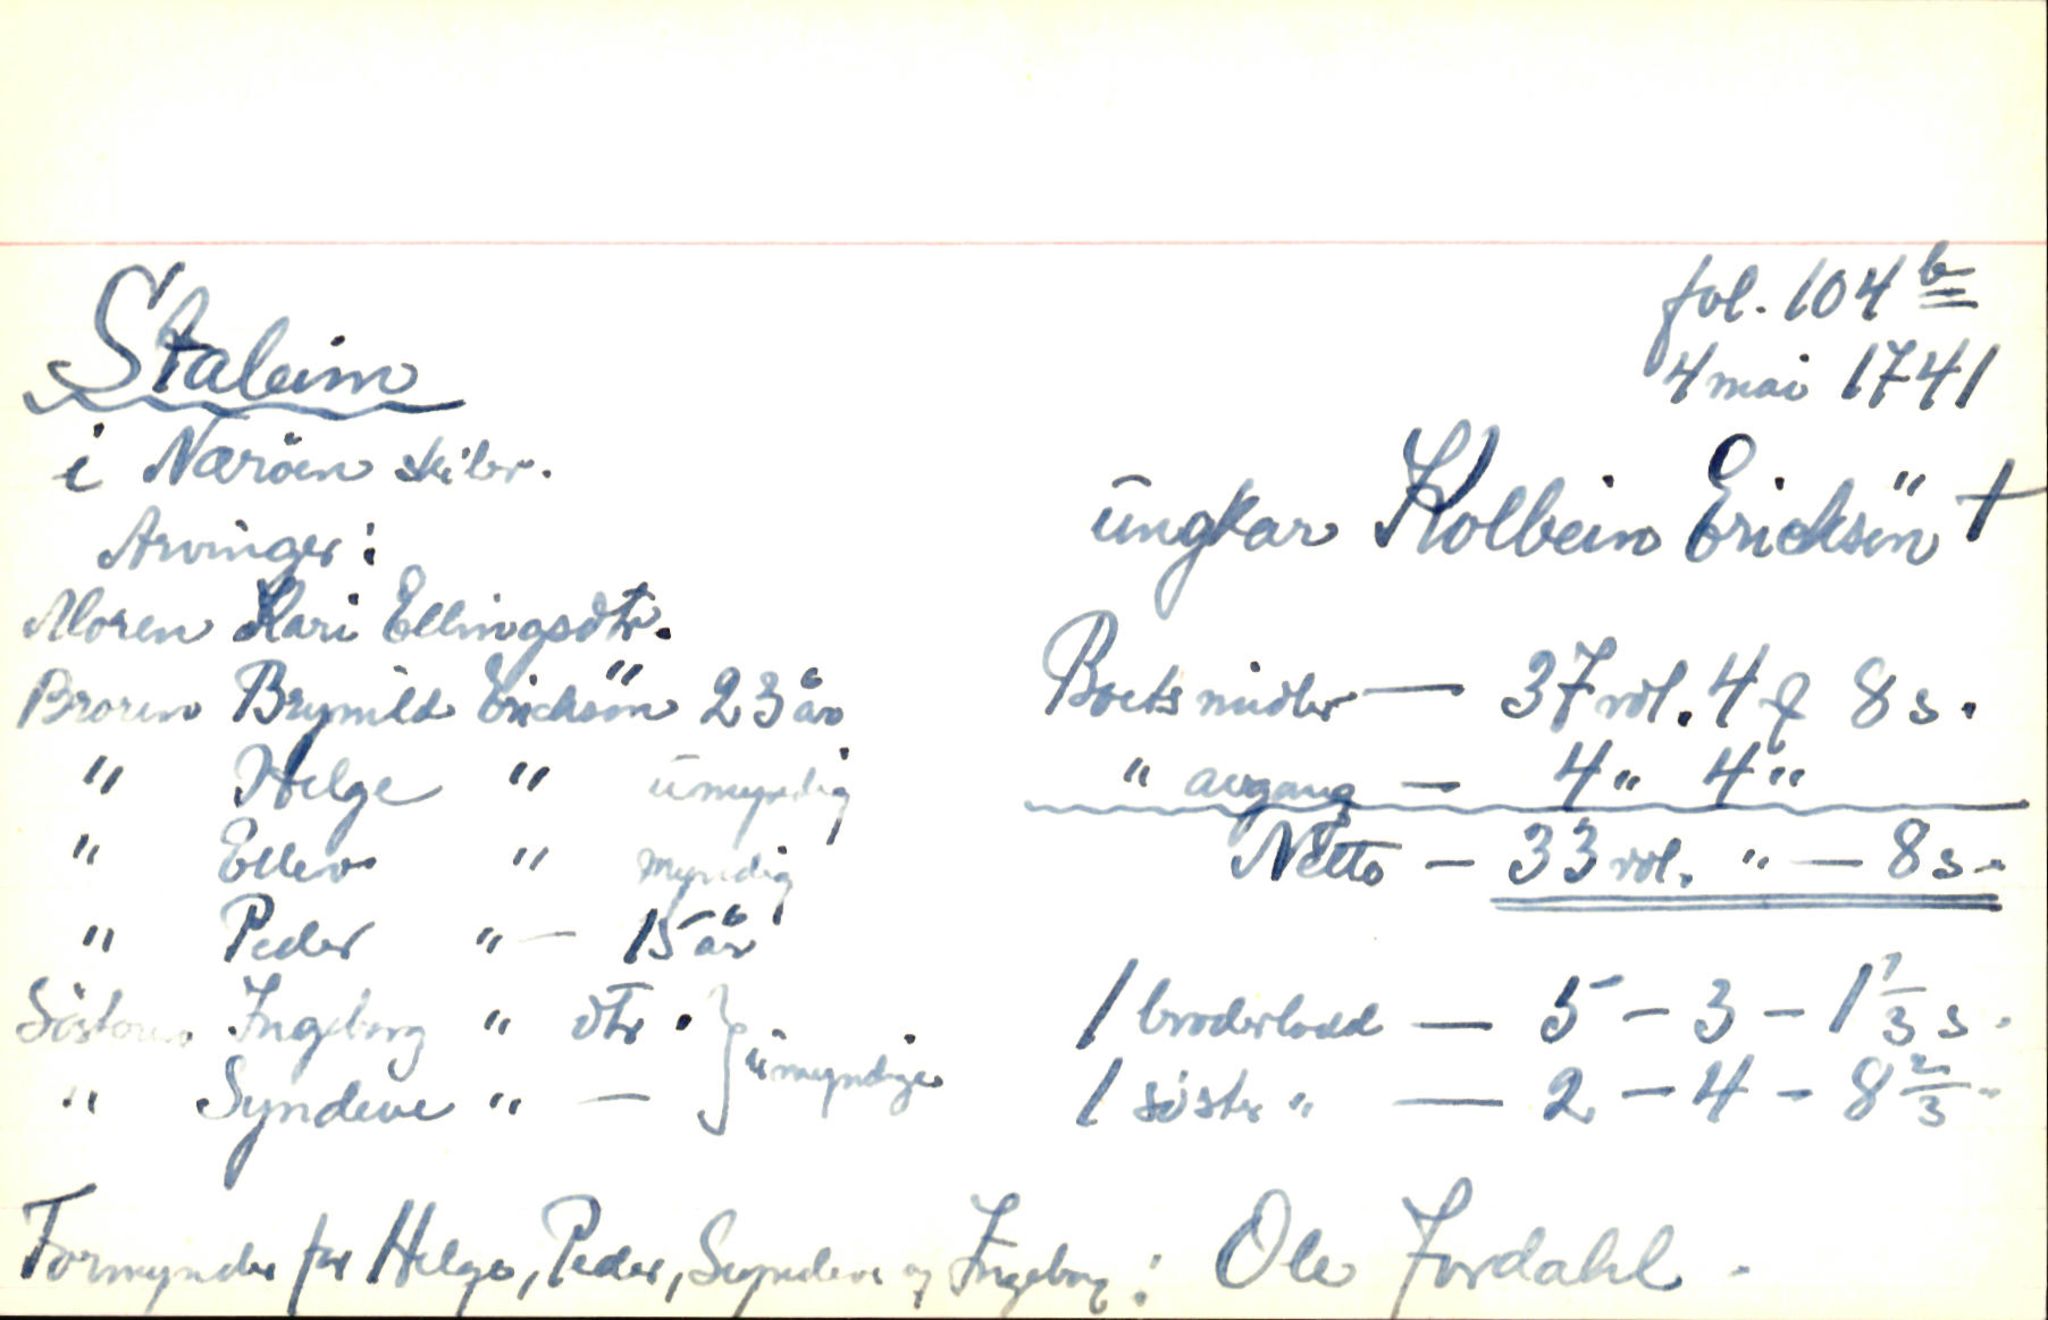 fol. 104 b
4 mai 1741
Staleim
i Næröen skibr.
ungkar Kolbein Ericksön †
Arvinger:
Moren Kari Ellingsdtr.
Broren Brynild Ericksön 23 år
" Helge " umyndig
" Ellev " myndig
" Peder " — 15 år
Söstoren Ingeborg " dtr. } umyndige
" Syndeve " —
Boets midler — 37 rdl. 4 ƒ 8 s.
" avgang — 4 " 4 "
Netto — 33 rdl. " — 8 s.
1 broderlodd — 5 — 3 — 1 1/3 s.
1 söster " — 2 — 4 — 8 2/3 "
Formynder for Helge, Peder, Syndeve og Ingeborg: Ole Jordahl.